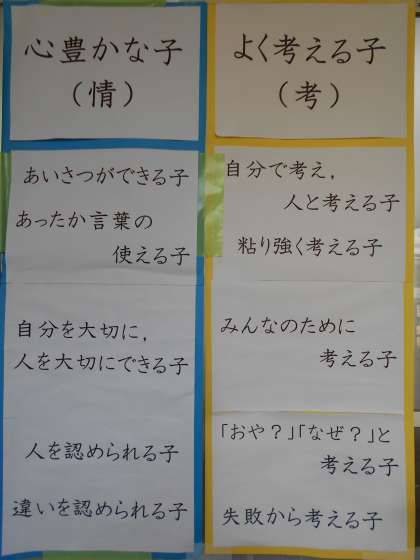 心豊かな子
（情）
あいさつができる子
あったか言葉の
使える子
自分を大切に，
人を大切にできる子
人を認められる子
違いを認められる子
よく考える子
（考）
自分で考え，
人と考える子
粘り強く考える子
みんなのために
考える子
「おや？」「なぜ？」と
考える子
失敗から考える子